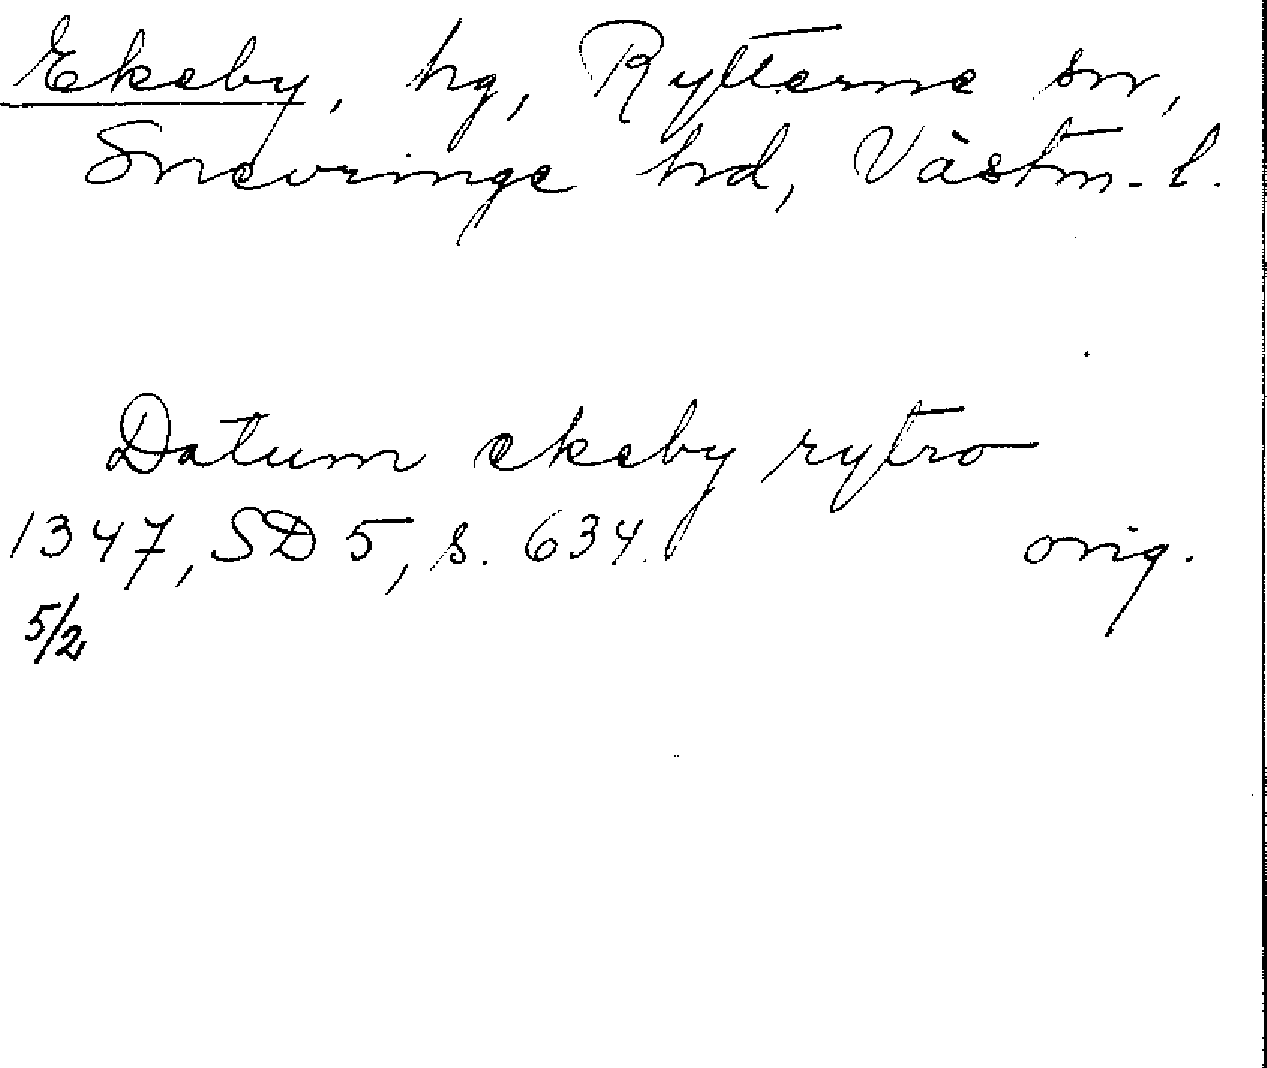 Ekeby, hg, Rytterne sn,
Snevringe hd, Västm. l.
Datum ekeby rytro
1347, SD 5, s. 634. orig.
5/2